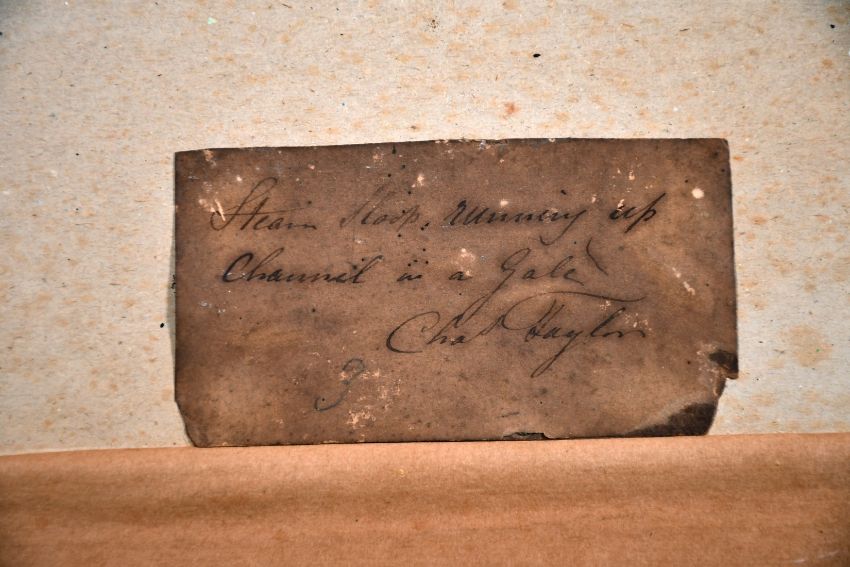 Steam Sloop, running up
Channel in a Gale
Chas Taylor
3